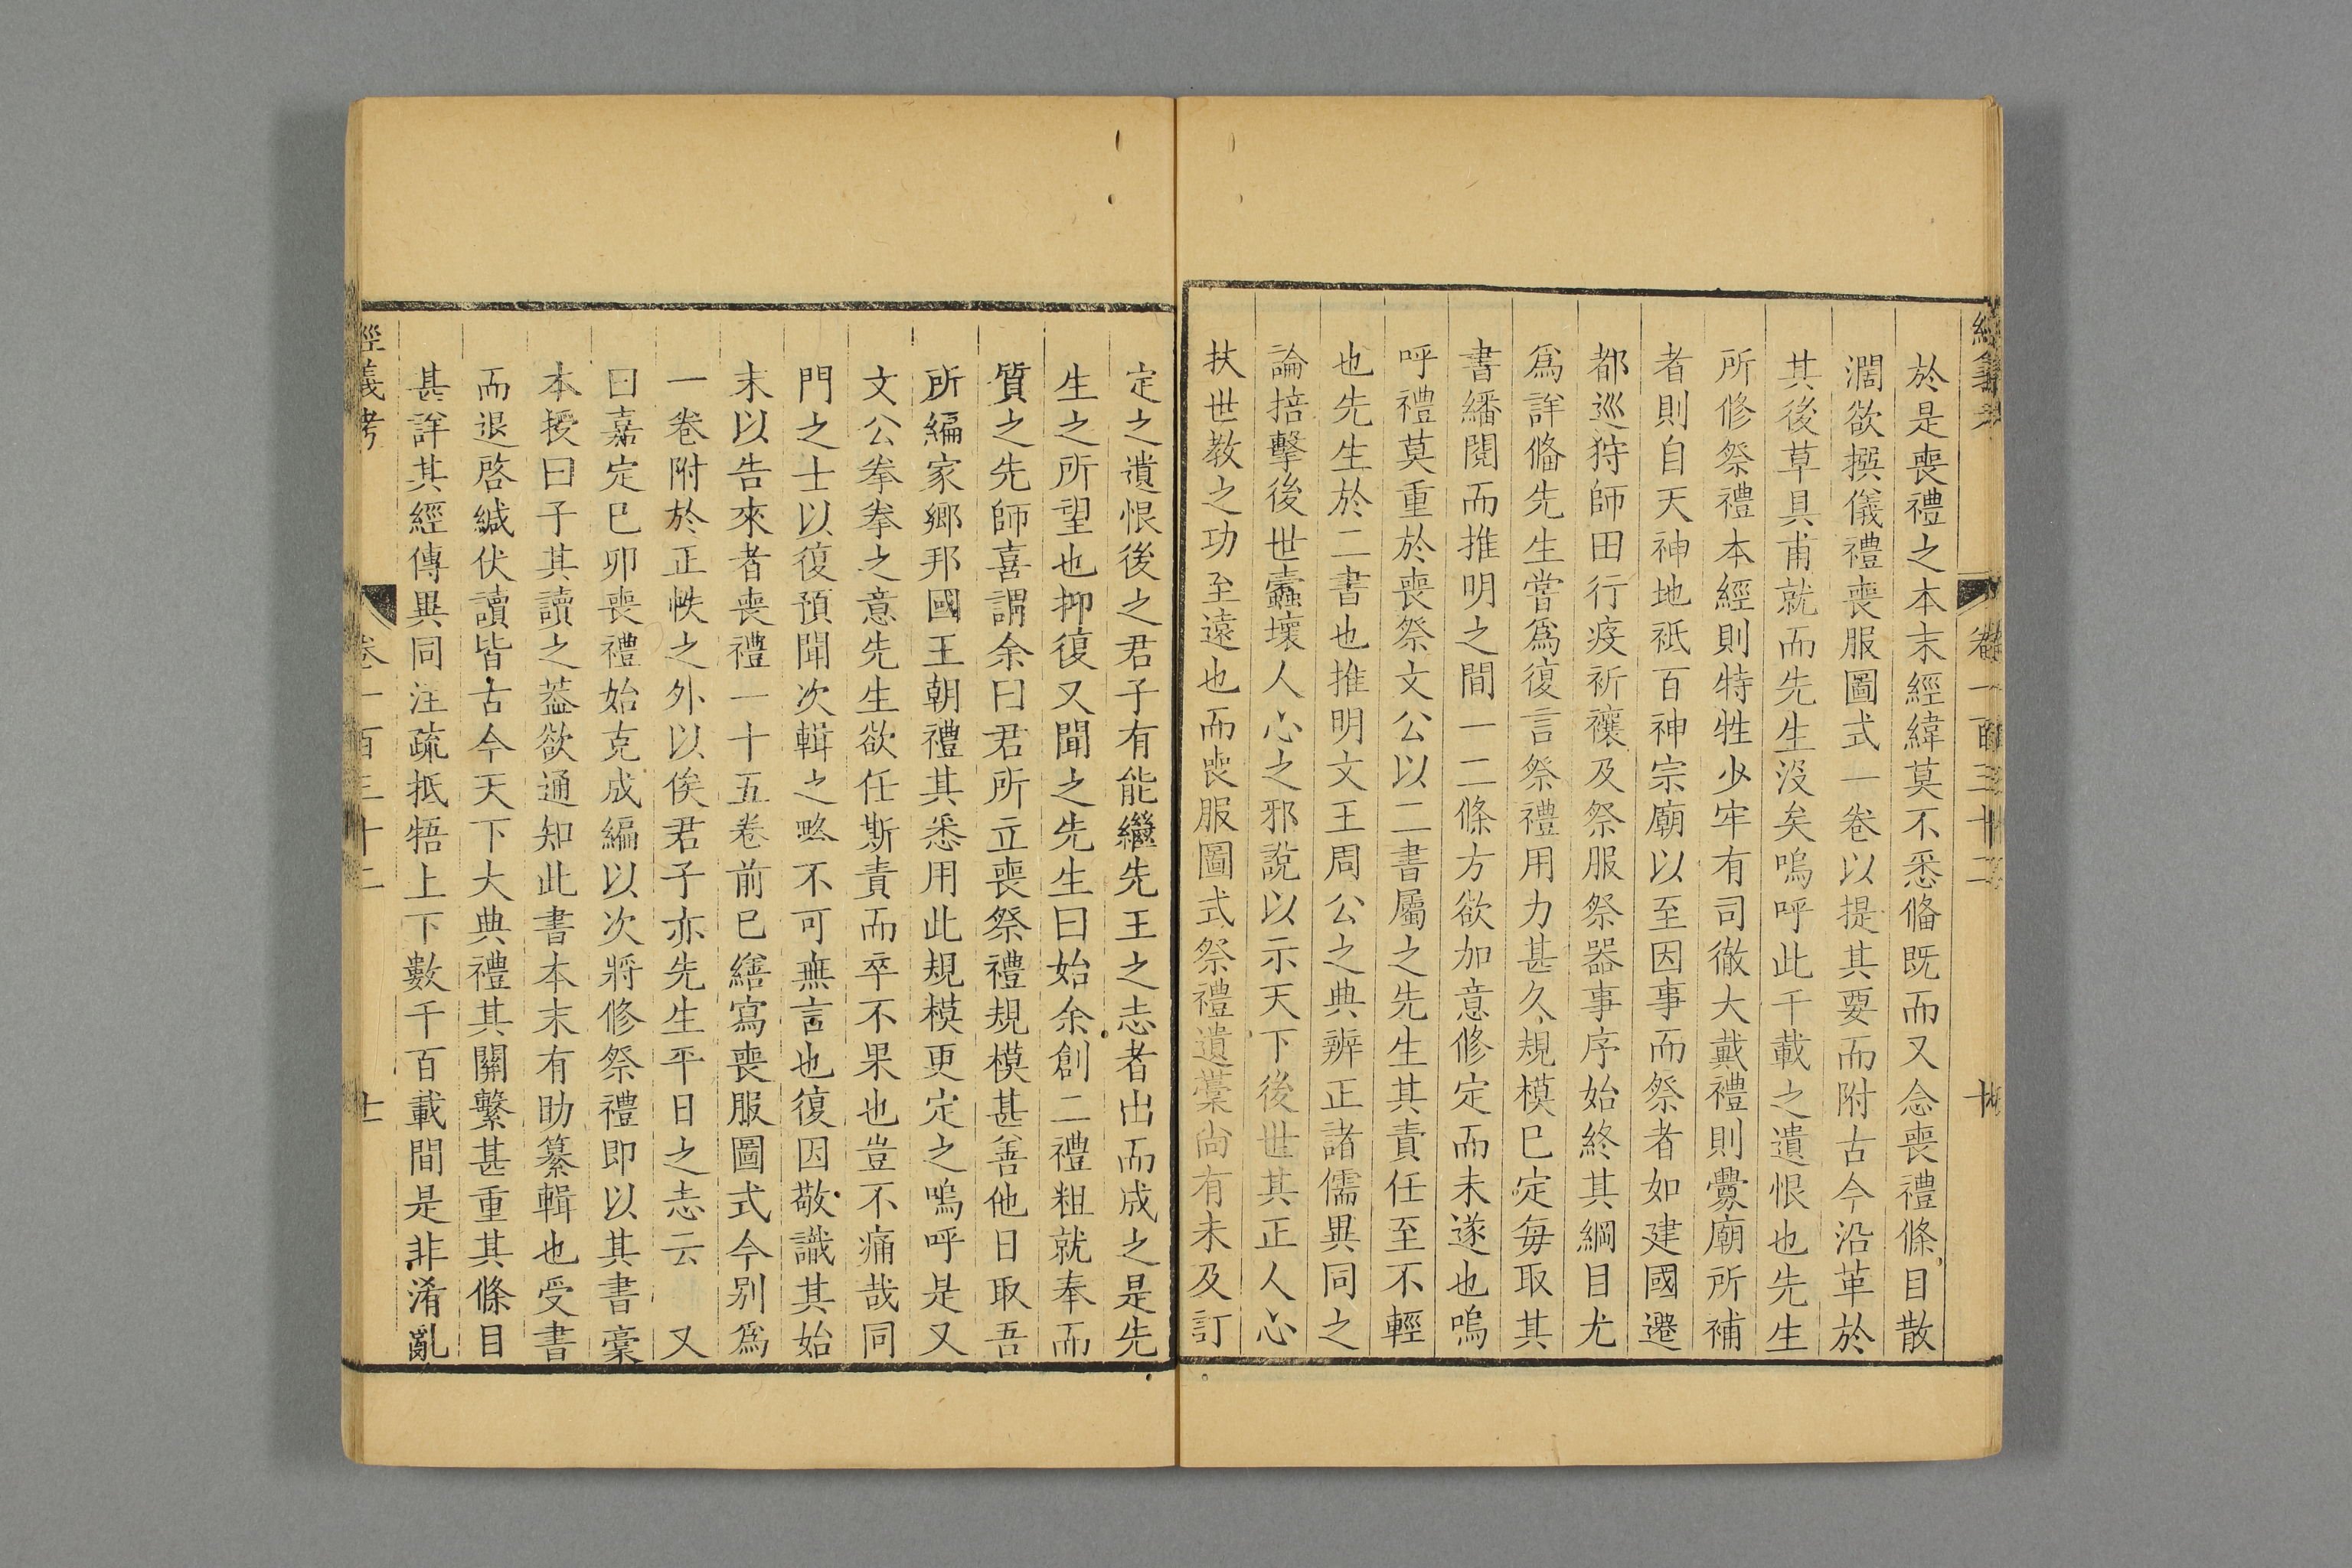 於是喪禮之本末經緯莫不悉偹既而又念喪禮條目散
濶欲撰儀禮喪服圖式一卷以提其要而附古今沿革於
其後草具甫就而先生沒矣嗚呼此千載之遺恨也先生
所修祭禮本經則特牲少牢有司徹大戴禮則釁廟所補
者則自天神地祇百神宗廟以至因事而祭者如建國遷
都巡狩師田行疫祈禳及祭服祭器事序始終其綱目尤
爲詳偹先生嘗爲復言祭禮用力甚久規模已定每取其
書繙閱而推明之間一二條方欲加意修定而未遂也嗚
呼禮莫重於喪祭文公以二書屬之先生其責任至不輕
也先生於二書也推明文王周公之典辨正諸儒異同之
論掊擊後世蠹壞人心之邪說以示天下後世其正人心
扶世教之功至遠也而喪服圖式祭禮遺藁尚有未及訂
定之遺恨後之君子有能繼先王之志者出而成之是先
生之所望也抑復又聞之先生曰始余創二禮粗就奉而
質之先師喜謂余曰君所立喪祭禮規模甚善他日取吾
所編家鄉邦國王朝禮其悉用此規模更定之嗚呼是又
文公拳拳之意先生欲任斯責而卒不果也豈不痛哉同
門之士以復預聞次輯之略不可無言也復因敬識其始
末以告來者喪禮一十五卷前已繕寫喪服圖式今別爲
一卷附於正帙之外以俟君子亦先生平日之志云　又
曰嘉定己卯喪禮始克成編以次將修祭禮即以其書藁
本授曰子其讀之葢欲通知此書本末有助纂輯也受書
而退啓緘伏讀皆古今天下大典禮其關繫甚重其條目
甚詳其經傳異同注疏抵牾上下數千百載間是非淆亂
經義考　卷一百三十二　十一